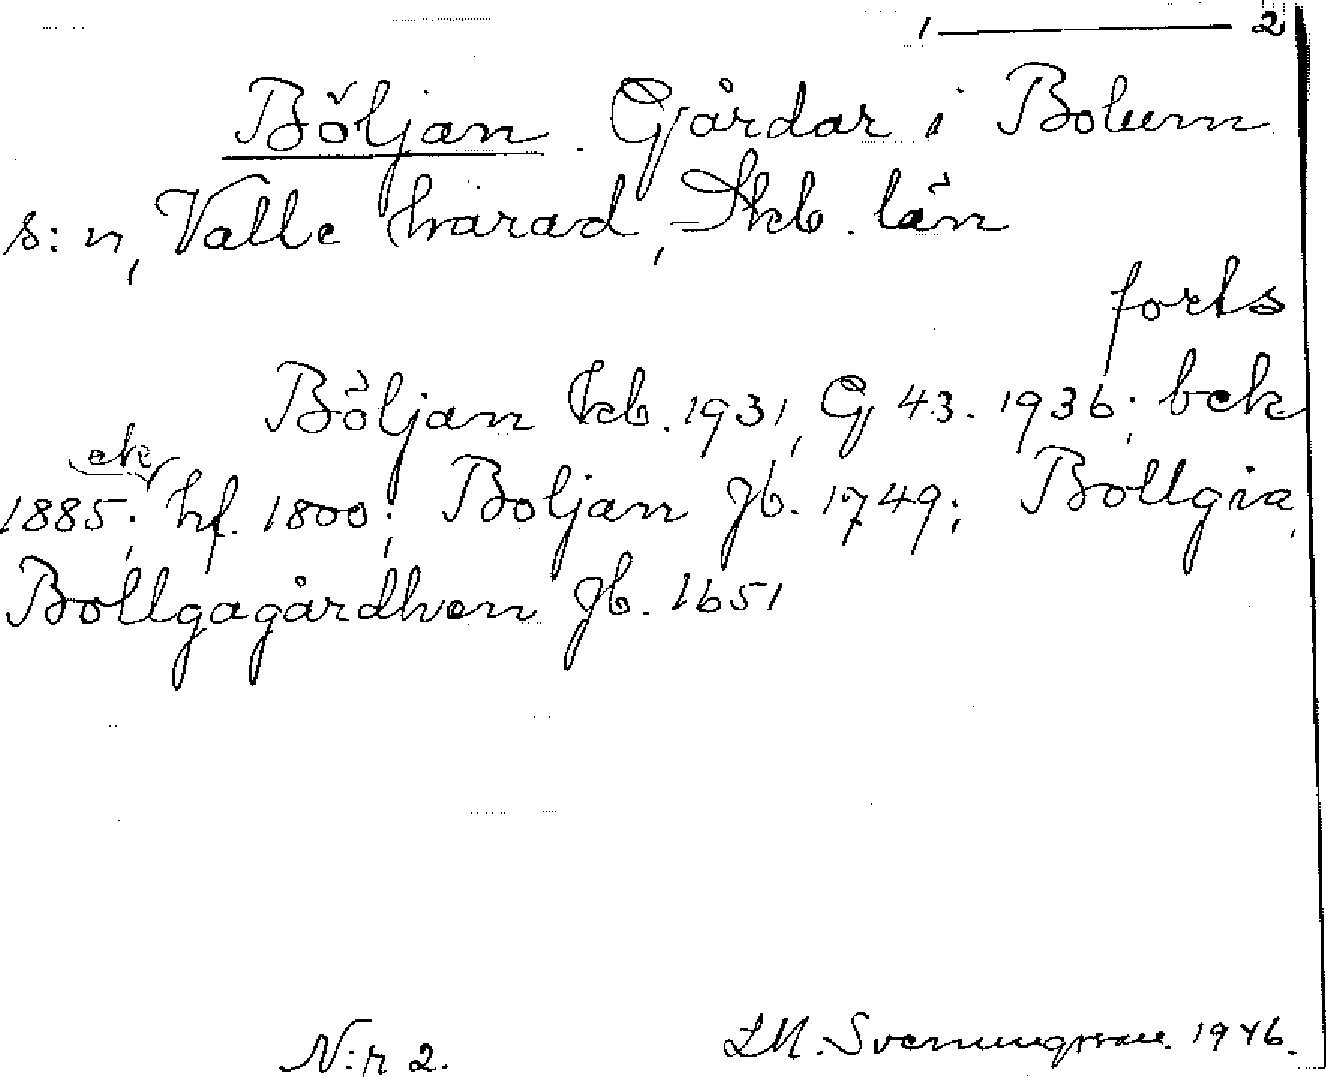 1 —— 2
Böljan. Gårdar i Bolum
s:n, Valle härad, Skb. län
forts
Böljan kb. 1931, G 43. 1936; bek
etc
1885; hf. 1800; Boljan jb. 1749; Böllgia,
Bollgagårdhen jb. 1651
N:r 2. LM. Svenungsson. 1946.